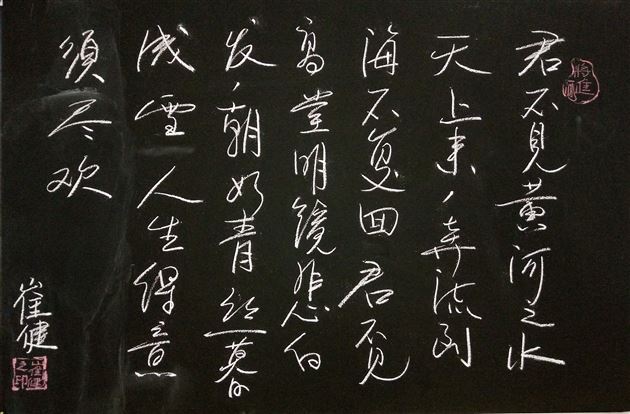 将进酒
君不見黄河之水
天上来，奔流到
海不复回君不见
高堂明镜悲白
发，朝如青丝暮
成雪人生得意
须尽欢
崔健
崔健之印